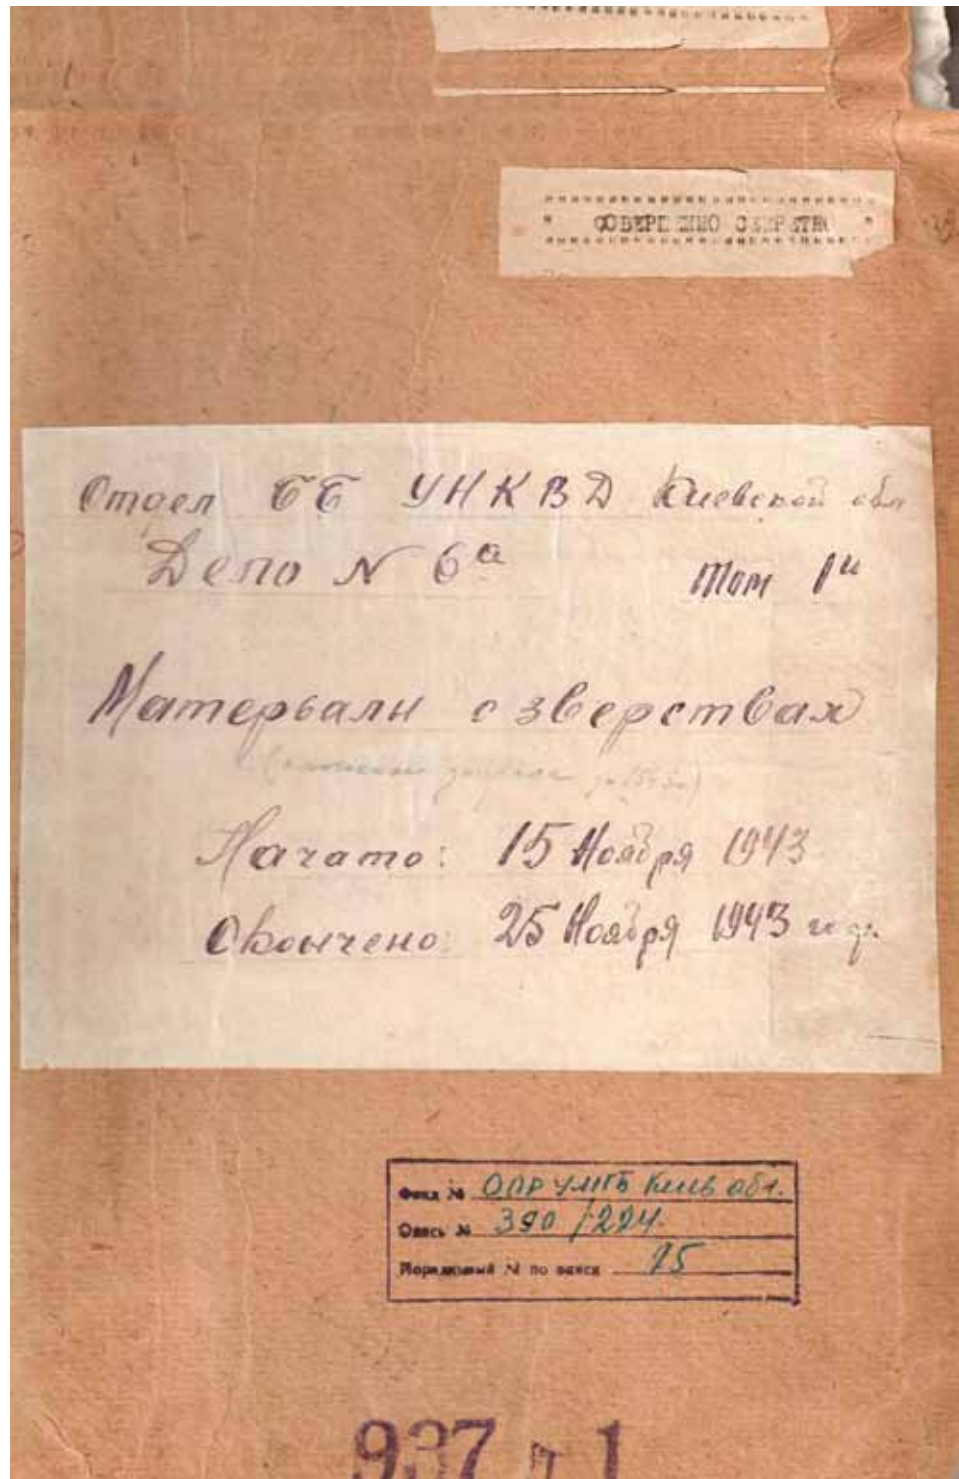 СОВЕРШЕННО СЕКРЕТНО
Отдел ББ УНКВД Киевской обл
Дело N 6а
том 1й
Матерьалы о зверствах
Начато: 15 Ноября 1943
Окончено: 25 Ноября 1943 год.
Фонд № ОПР УМГБ Киев обл.
Опись № 390/224.
Порядковый № по описи 25
937 т 1